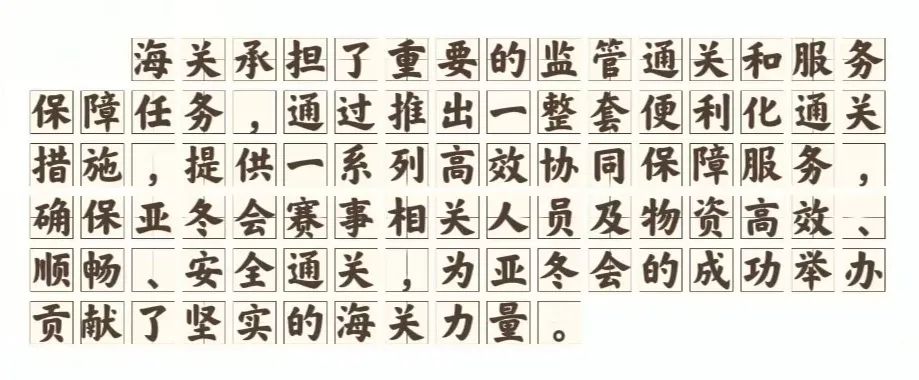 海关承担了重要的监管通关和服务
保障任务，通过推出一整套便利化通关
措施，提供一系列高效协同保障服务，
确保亚冬会赛事相关人员及物资高效、
顺畅、安全通关，为亚冬会的成功举办
贡献了坚实的海关力量。